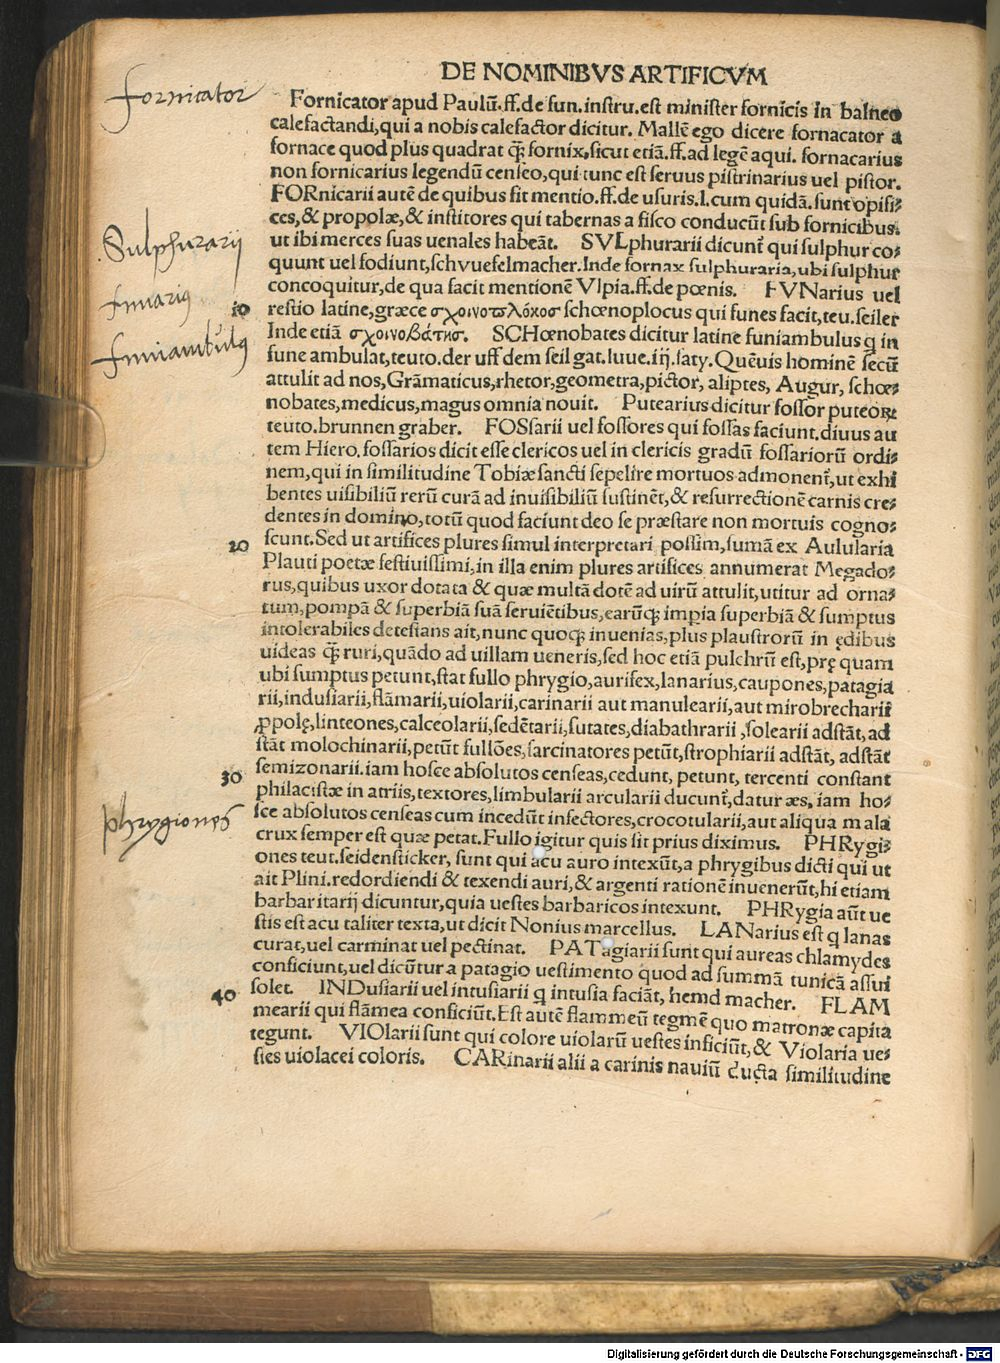 DE NOMINIBVS ARTIFICVM
Fornicator
Fornicator apud Paulū.ff.de fun.instru.est minister fornicis in balneo
calefactandi,qui a nobis calefactor dicitur. Mallē ego dicere fornacator a
fornace quod plus quadrat q̄ꝫ fornix,sicut etiā.ff.ad legē aqui. fornacarius
non fornicarius legendū censeo,qui tunc est seruus pistrinarius uel pistor.
FORnicarii autē de quibus fit mentio.ff.de usuris.l.cum quidā.sunt opifi⸗
ces,& propolæ,& institores qui tabernas a fisco conducūt sub fornicibus.
Sulphurarij
ut ibi merces suas uenales habeāt. SVLphurarii dicunt̄ qui sulphur co⸗
quunt uel fodiunt,schvuefelmacher.Inde fornax sulphuraria,ubi sulphur
concoquitur,de qua facit mentionē Vlpia.ff.de pœnis. FVNarius uel
funarius
10 restio latine,græce σχοινοπλόκοσ schœnoplocus qui funes facit,teu.seiler
Inde etiā σχοινοβάτησ. SCHœnobates dicitur latine funiambulus q in
funiambulus
fune ambulat,teuto.der uff dem seil gat.Iuue.iij.saty. Quēuis hominē secū
attulit ad nos,Grāmaticus,rhetor,geometra,pictor, aliptes, Augur, schœ⸗
nobates,medicus,magus omnia nouit. Putearius dicitur fossor puteoꝝ
teuto.brunnen graber. FOSsarii uel fossores qui fossas faciunt.diuus au
tem Hiero.fossarios dicit esse clericos uel in clericis gradū fossariorū ordi⸗
nem,qui in similitudine Tobiæ sancti sepelire mortuos admonent̄,ut exhi
bentes uisibiliū rerū curā ad inuisibiliū sustinēt,& resurrectionē carnis cre⸗
dentes in domino,totū quod faciunt deo se præstare non mortuis cogno⸗
20 scunt.Sed ut artifices plures simul interpretari possim,sumā ex Aulularia
Plauti poetæ festiuissimi,in illa enim plures artifices annumerat Megado⸗
rus,quibus uxor dotata & quæ multā dotē ad uirū attulit,utitur ad orna⸗
tum,pompā & superbiā suā seruiētibus,earūqꝫ impia superbiā & sumptus
intolerabiles detestans ait,nunc quoqꝫ inuenias,plus plaustrorū in ędibus
uideas q̄ꝫ ruri,quādo ad uillam ueneris,sed hoc etiā pulchrū est,prę quam
ubi sumptus petunt,stat fullo phrygio,aurifex,lanarius,caupones,patagia
rii,indusiarii,flāmarii,uiolarii,carinarii aut manulearii,aut mirobrecharii
ꝓpolę,linteones,calceolarii,sedētarii,sutates,diabathrarii ,solearii adstāt,ad
stāt molochinarii,petūt fullōes,sarcinatores petūt,strophiarii adstāt, adstāt
30 semizonarii.iam hosce absolutos censeas,cedunt, petunt, tercenti constant
philacistæ in atriis,textores,limbularii arcularii ducunt̄,datur æs, iam ho⸗
phrygiones
sce absolutos censeas cum incedūt infectores,crocotularii,aut aliqua mala
crux semper est quæ petat.Fullo igitur quis sit prius diximus. PHRygi⸗
ones teut.seidensticker, sunt qui acu auro intexūt,a phrygibus dicti qui ut
ait Plini.redordiendi & texendi auri,& argenti rationē inuenerūt,hi etiam
barbaritarij dicuntur,quia uestes barbaricos intexunt. PHRygia aūt ue
stis est acu taliter texta,ut dicit Nonius marcellus. LANarius est q lanas
curat,uel carminat uel pectinat. PATagiarii sunt qui aureas chlamydes
conficiunt,uel dicūtur a patagio uestimento quod ad summā tunicā assui
40 solet. INDusiarii uel intusiarii q intusia faciāt, hemd macher. FLAM
mearii qui flāmea conficiūt.Est autē flammeū tegmē quo matronæ capita
tegunt. VIOlarii sunt qui colore uiolarū uestes inficiūt,& Violaria ue⸗
stes uiolacei coloris. CARinarii alii a carinis nauiū ducta similitudine
Digitalisierung gefördert durch die Deutsche Forschungsgemeinschaft - DFG